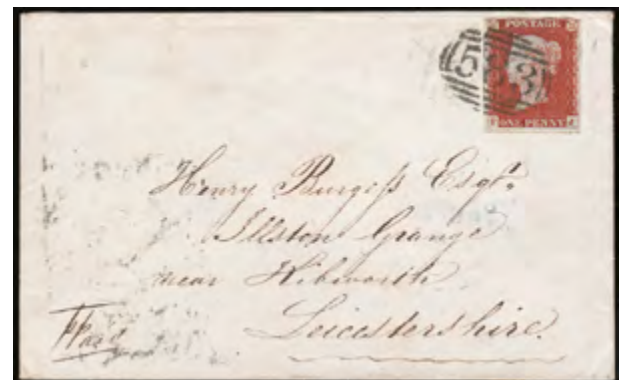 POSTAGE
ONE PENNY
Henry Burgess Esqre.
Illston Grange
near Kibworth
Leicestershire.